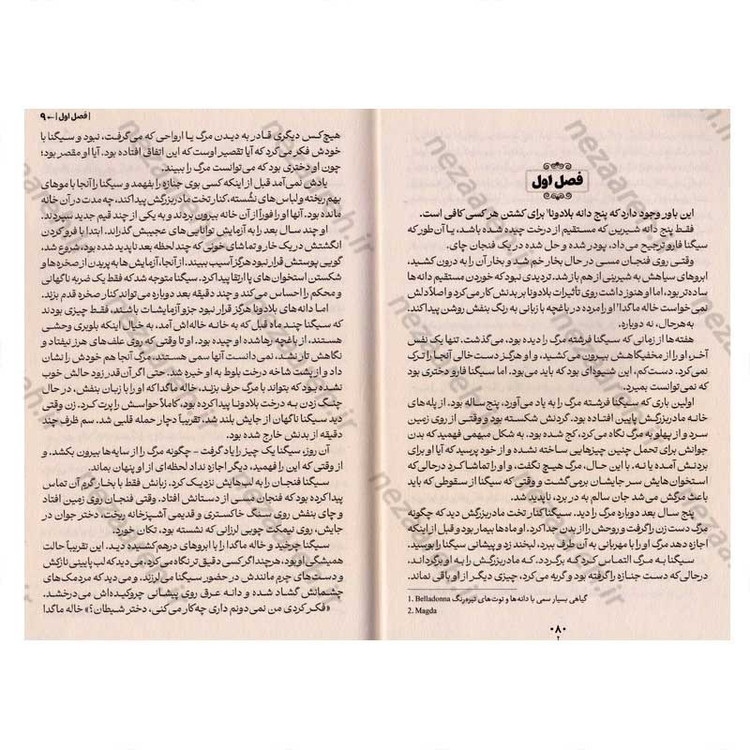 فصل اول
این باور وجود دارد که پنج دانه بلادونا¹ برای کشتن هر کسی کافی است.
فقط پنج دانه شیرین که مستقیم از درخت چیده شده باشد، یا آن‌طور که
سیگنا فارو ترجیح می‌داد، پودر شده و حل شده در یک فنجان چای.
وقتی روی فنجان مسی در حال بخار خم شد و بخار آن را به درون کشید،
ابروهای سیاهش به شیرینی از هم باز شد. تردیدی نبود که خوردن مستقیم دانه ها
ساده‌تر بود، اما او هنوز داشت روی تأثیرات بلادونا بر بدنش کار می‌کرد و اصلاً دلش
نمی‌خواست خاله ماگدا² او را مرده در باغچه با زبانی به رنگ بنفش روشن پیدا کند.
به‌هرحال، نه دوباره.
هفته‌ها از زمانی که سیگنا فرشته مرگ را دیده بود، می‌گذشت. تنها یک نفس
آخر، او را از مخفیگاهش بیرون می‌کشید، و او هرگز دست‌خالی آنجا را ترک
نمی‌کرد. دست‌کم، این شیوه‌ای بود که باید می‌بود. اما سیگنا فارو دختری بود
که نمی‌توانست بمیرد.
اولین باری که سیگنا فرشته مرگ را به یاد می‌آورد، پنج ساله بود. از پله‌های
خانه مادربزرگش پایین افتاده بود. گردنش شکسته بود و وقتی از روی زمین
سرد و از پهلو به مرگ نگاه می‌کرد، کج شده بود. به شکل مبهمی فهمید که بدن
جوانش برای تحمل چنین چیزهایی ساخته نشده و از خود پرسید که آیا او برای
بردنش آمده یا نه. با این حال، مرگ هیچ نگفت، و او را تماشا کرد درحالی‌که
استخوان‌هایش سر جایشان برمی‌گشت و وقتی که سیگنا از سقوطی که باید
باعث مرگش می‌شد جان سالم به در برد، ناپدید شد.
پنج سال بعد دوباره مرگ را دید. سیگنا کنار تخت مادربزرگش دید که چگونه
مرگ دست زن را گرفت و روحش را از بدن جدا کرد. او ماه‌ها بیمار بود و قبل از اینکه
اجازه دهد مرگ او را با مهربانی به آن طرف ببرد، لبخند زد و پیشانی سیگنا را بوسید.
سیگنا به مرگ التماس کرد که برگردد. که مادربزرگش را به او برگرداند.
درحالی‌که دست جنازه را گرفته بود و گریه می‌کرد، چیزی دیگر از او باقی نماند.
1. Belladonna گیاهی بسیار سمی با دانه‌ها و توت‌های تیره‌رنگ
2. Magda
۰۸۰
| فصل اول | ← ۹
هیچ‌کس دیگری قادر به دیدن مرگ یا ارواحی که می‌گرفت، نبود و سیگنا با
خودش فکر می‌کرد که آیا تقصیر اوست که این اتفاق افتاده بود. آیا او مقصر بود؛
چون او دختری بود که می‌توانست مرگ را ببیند.
یادش نمی‌آمد قبل از اینکه کسی بوی جنازه را بفهمد و سیگنا را آنجا با موهای
بهم ریخته ولباس های نشُسته، کنار تخت مادربزرگش پیدا کند، چه مدت در آن خانه
مانده بود. آنها او را فوراً از آن خانه بیرون بردند و به یکی از چند قیم جدید سپردند.
او چند سال بعد را به آزمایش توانایی‌های عجیبش گذراند. ابتدا با فرو کردن
انگشتش در یک خار و تماشای خونی که چند لحظه بعد ناپدید شده بود، شروع شد،
گویی پوستش قرار نبود هرگز آسیب ببیند. از آنجا، آزمایش ها به پریدن از صخره ها و
شکستن استخوان های پا ارتقا پیدا کرد. سیگنا متوجه شد که فقط یک ضربه ناگهانی
و محکم را احساس می کند و چند دقیقه بعد دوباره می‌تواند کنار صخره قدم بزند.
اما دانه‌های بلادونا هرگز قرار نبود جزو آزمایشات باشند، فقط چیزی بودند
که سیگنا چند ماه قبل که به خانه خاله‌اش آمد، به خیال اینکه بلوبری وحشی
هستند، از باغچه رها شده او چیده بود. او تا وقتی که روی علف‌های هرز نیفتاد و
نگاهش تار نشد، نمی دانست آنها سمی هستند. مرگ آنجا هم خودش را نشان
داد و از پشت شاخه درخت بلوط به او خیره شد. حتی اگر آن‌قدر زود حالش خوب
نشده بود که بتواند با مرگ حرف بزند، خاله ماگدا که او را با زبان بنفش، در حال
چنگ زدن به درخت بلادونا پیدا کرده بود، کاملاً حواسش را پرت کرد. زن وقتی
دید سیگنا ناگهان از جایش بلند شد، تقریباً دچار حمله قلبی شد. سم ظرف چند
دقیقه از بدنش خارج شده بود.
آن روز، سیگنا یک چیز را یاد گرفت - چگونه مرگ را از سایه‌ها بیرون بکشد. و
از وقتی که این را فهمید، دیگر اجازه نداد لحظه‌ای از او پنهان بماند.
سیگنا فنجان را به لب‌هایش نزدیک کرد. زبانش فقط با بخار گرم آن تماس
پیدا کرده بود که فنجان مسی از دستانش افتاد. وقتی فنجان روی زمین افتاد
و چای بنفش روی سنگ خاکستری و قدیمی آشپزخانه ریخت، دختر جوان در
جایش، روی نیمکت چوبی لرزانی که نشسته بود، تکان خورد.
سیگنا چرخید و خاله ماگدا را با ابروهای درهم‌کشیده دید. این تقریباً حالت
همیشگی او بود، هرچند اگر کسی دقیق تر نگاه می‌کرد، می‌دید که لب پایینی نازکش
و دست‌های چرم مانندش در حضور سیگنا می لرزند. و می‌دید که مردمک های
چشمانش گشاد شده و دانه عرق روی پیشانی چروکیده‌اش می‌درخشد.
«فکر کردی من نمی‌دونم داری چه‌کار می‌کنی، دختر شیطان؟» خاله ماگدا